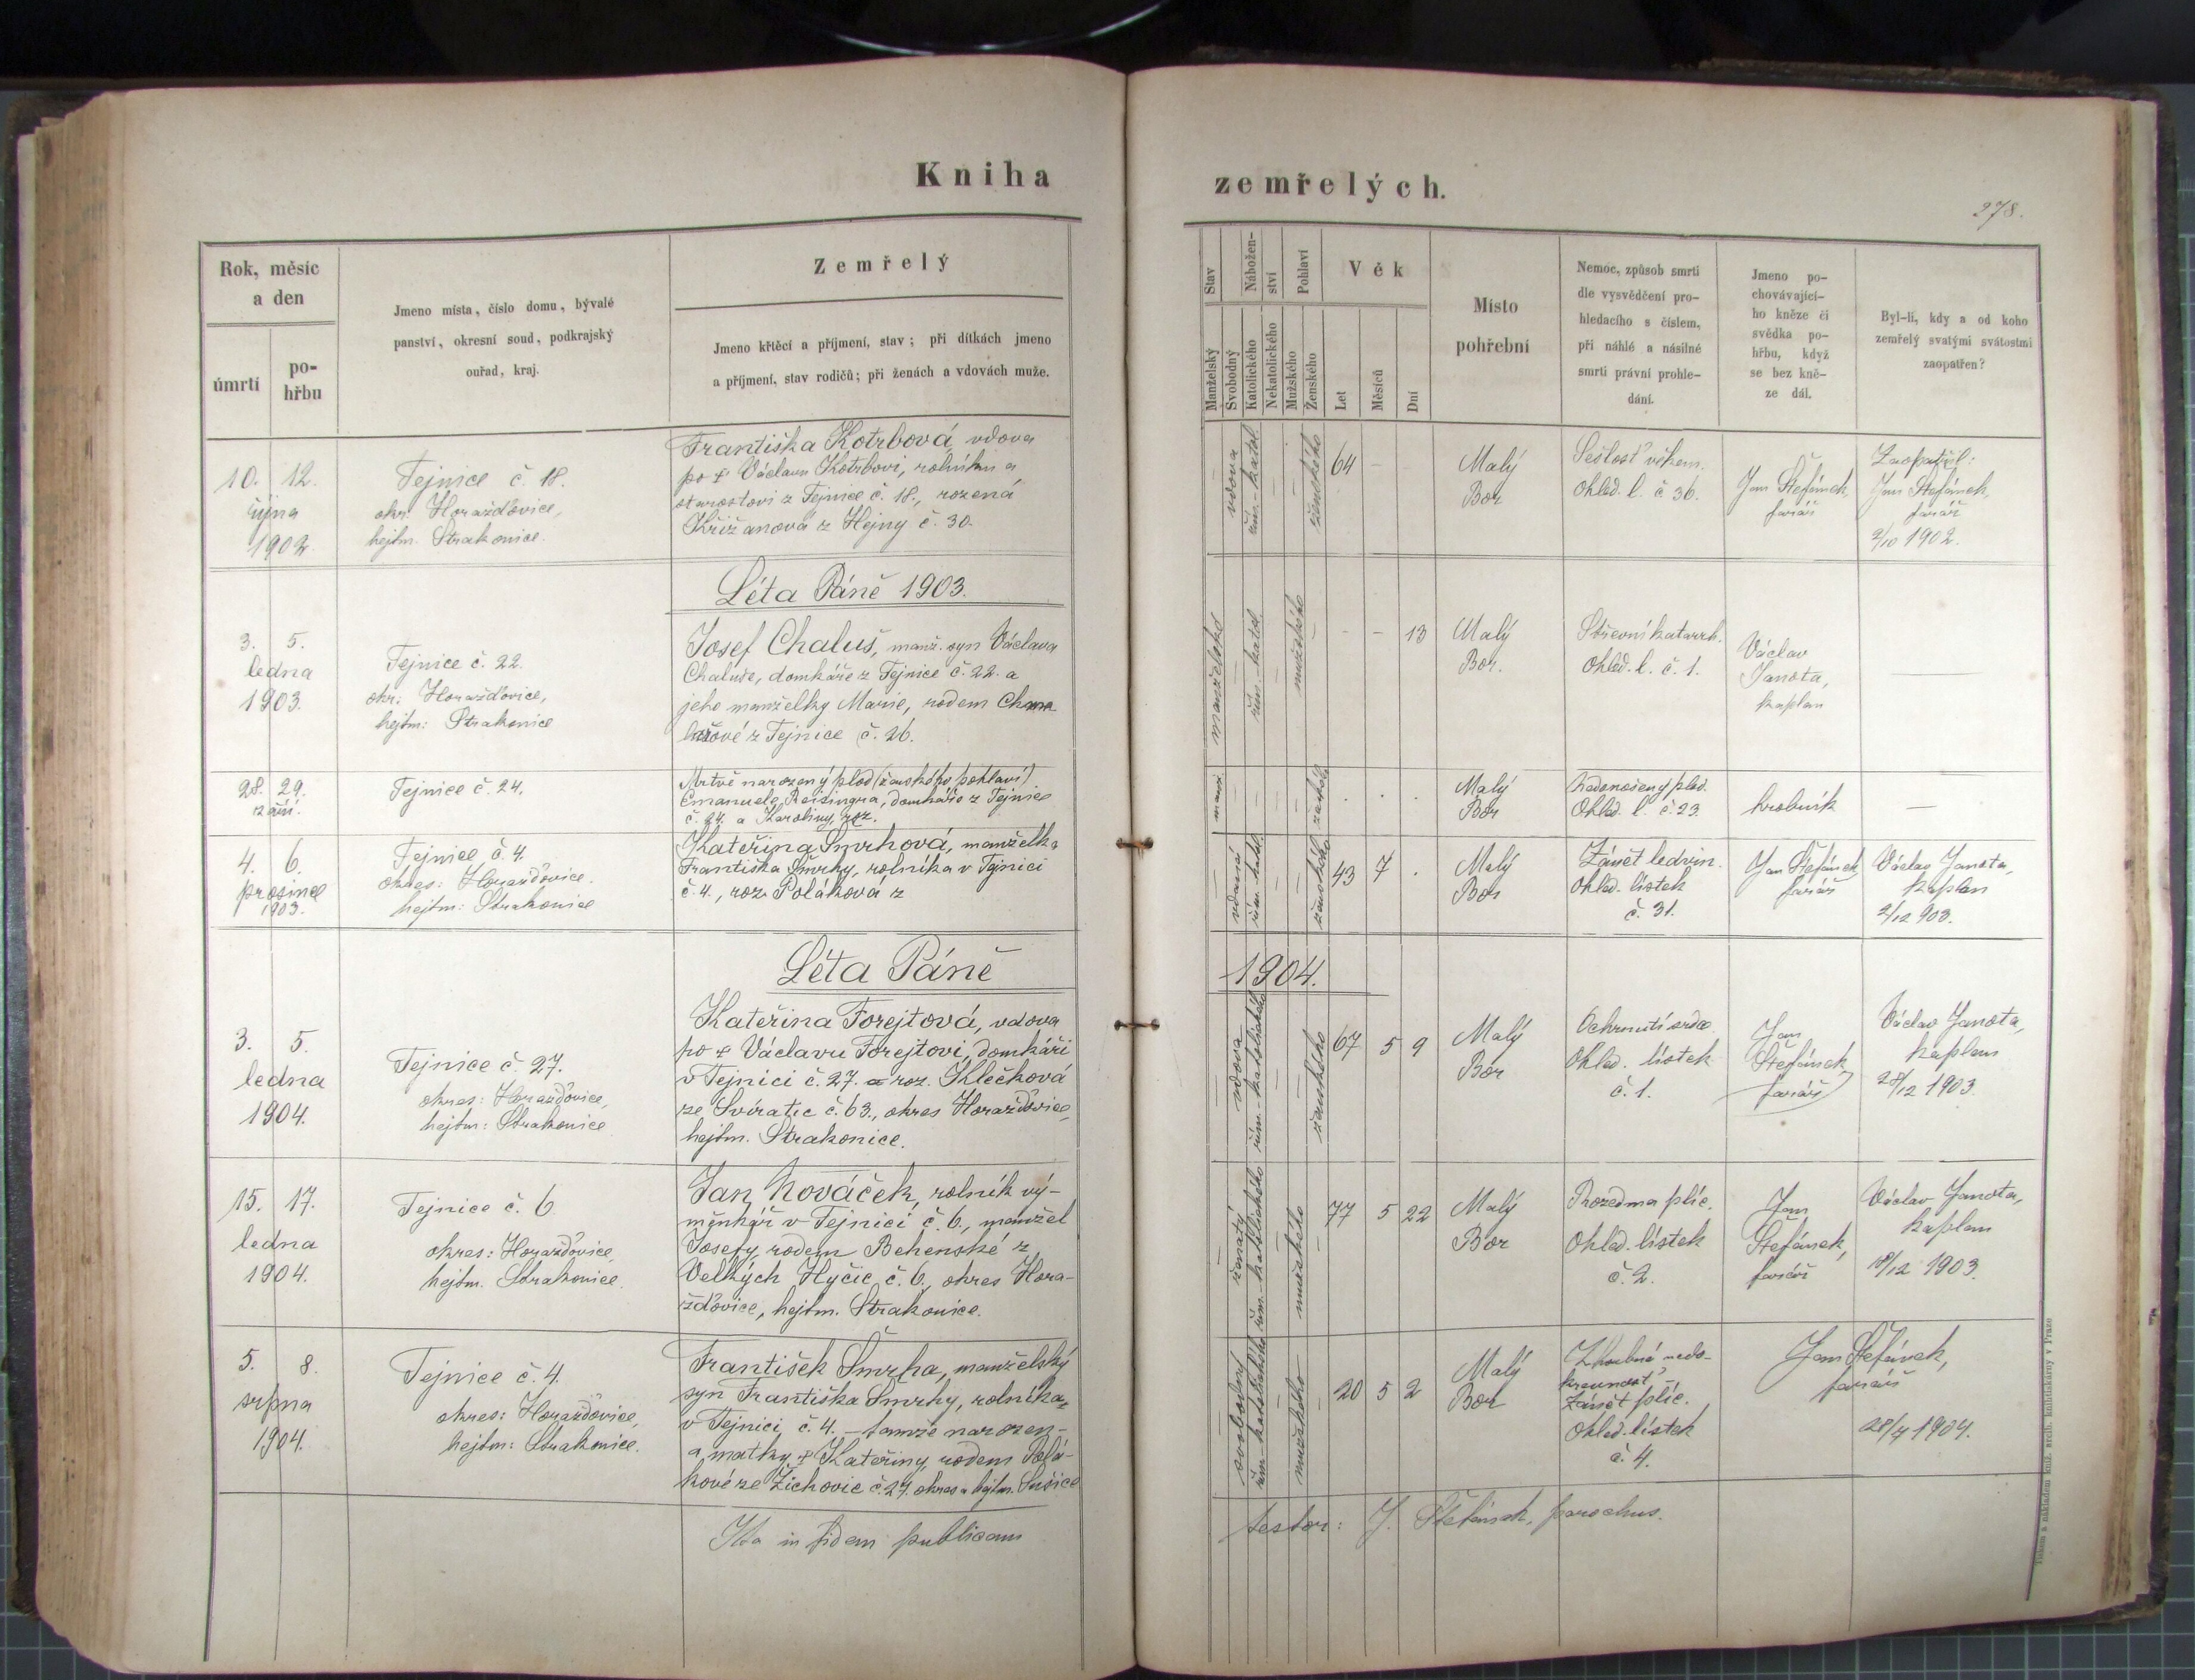 Kniha
zemřelých.
278.
Rok, měsíc
a den
úmrtí
po-
hřbu
Jmeno místa, číslo domu, bývalé
panství, okresní soud, podkrajský
ouřad, kraj.
Zemřelý
Jmeno křtěcí a příjmení, stav; při dítkách jmeno
a příjmení, stav rodičů; při ženách a vdovách muže.
Stav
Manželský
Svobodný
Nábožen-
ství
Katolického
Nekatolického
Pohlaví
Mužského
Ženského
Věk
Let
Měsíců
Dní
Místo
pohřební
Nemoc, způsob smrti
dle vysvědčení pro-
hledacího s číslem,
při náhlé a násilné
smrti právní prohle-
dání.
Jmeno po-
chovávající-
ho kněze či
svědka po-
hřbu, když
se bez kně-
ze dál.
Byl-li, kdy a od koho
zemřelý svatými svátostmi
zaopatřen?
10. 12.
října
1902.
Tejnice č. 18.
okr. Horažďovice,
hejtm. Strakonice.
Františka Kotrbová vdova
po † Václavu Kotrbovi, rolníku a
starostovi z Tejnice č. 18., rozená
Křižanová z Hejny č. 30.
vdova
řím.-katol.
ženského
64 -
Malý
Bor
Sešlosť věkem.
Ohled. l. č 36.
Jan Štefánek
farář
Zaopatřil:
Jan Štefánek,
farář
2/10 1902.
Léta Páně 1903.
3. 5.
ledna
1903.
Tejnice č. 22.
okr: Horažďovice,
hejtm: Strakonice
Josef Chaluš, manž. syn Václava
Chaluše, domkáře z Tejnice č. 22. a
jeho manželky Marie, rodem
z Tejnice č. 26.
manželské
řím.-katol.
mužského
- - 13
Malý
Bor.
Střevní katarrh.
Ohled. l. č. 1.
Václav
Janota,
kaplan
28. 29.
září.
Tejnice č. 24.
Mrtvě narozený plod (ženského pohlaví)
Emanuela Reisingra, domkáře z Tejnice
č. 24. a Karoliny, roz.
manž.
ženského
. . .
Malý
Bor
Nedonošený plod.
Ohled. l. č. 23.
hrobník
—
4. 6.
prosince
1903.
Tejnice č. 4.
okres: Horažďovice.
hejtm: Strakonice
Kateřina Smrhová, manželka
Františka Smrhy, rolníka v Tejnici
č. 4., roz. Poláková z
vdaná
řím. katol.
ženského
43 7 .
Malý
Bor
Zánět ledvin.
Ohled. lístek
č. 31.
Jan Štefánek
farář
Václav Janota,
kaplan
2/12 903.
Léta Páně
1904.
3. 5.
ledna
1904.
Tejnice č. 27.
okres: Horažďovice,
hejtm: Strakonice
Kateřina Forejtová, vdova
po † Václavu Forejtovi, domkáři
v Tejnici č. 27. roz. Klečková
ze Svíratic č. 63., okres Horažďovice,
hejtm. Strakonice.
vdova
řím.-katolického
ženského
67 5 9
Malý
Bor
Ochrnutí srdce.
Ohled. lístek
č. 1.
Jan
Štefánek,
farář
Václav Janota,
kaplan
28/12 1903.
15. 17.
ledna
1904.
Tejnice č. 6
okres: Horažďovice,
hejtm. Strakonice.
Jan Nováček, rolník vý-
měnkář v Tejnici č. 6., manžel
Josefy, rodem Behenské z
Velkých Hyčic č. 6., okres Hora-
žďovice, hejtm. Strakonice.
ženatý
řím.-katolického
mužského
77 5 22
Malý
Bor
Rozedma plic.
Ohled. lístek
č. 2.
Jan
Štefánek,
farář
Václav Janota,
kaplan
/12 1903.
5. 8.
srpna
1904.
Tejnice č. 4.
okres: Horažďovice,
hejtm: Strakonice.
František Smrha, manželský
syn Františka Smrhy, rolníka
v Tejnici č. 4. - tamže narozen -
a matky † Kateřiny, rodem Polá-
kové ze Žichovic č. 27. okres a hejtm. Sušice
svobodný
řím.-katolického
mužského
20 5 2
Malý
Bor
Zhoubná nedo-
krevnost,
Zánět plic.
Ohled. lístek
č. 4.
Jan Štefánek,
farář
1904.
Ita in fidem publicam
testor: J. Štefánek, parochus.
Tiskem a nákladem kníž. arcib. knihtiskárny v Praze